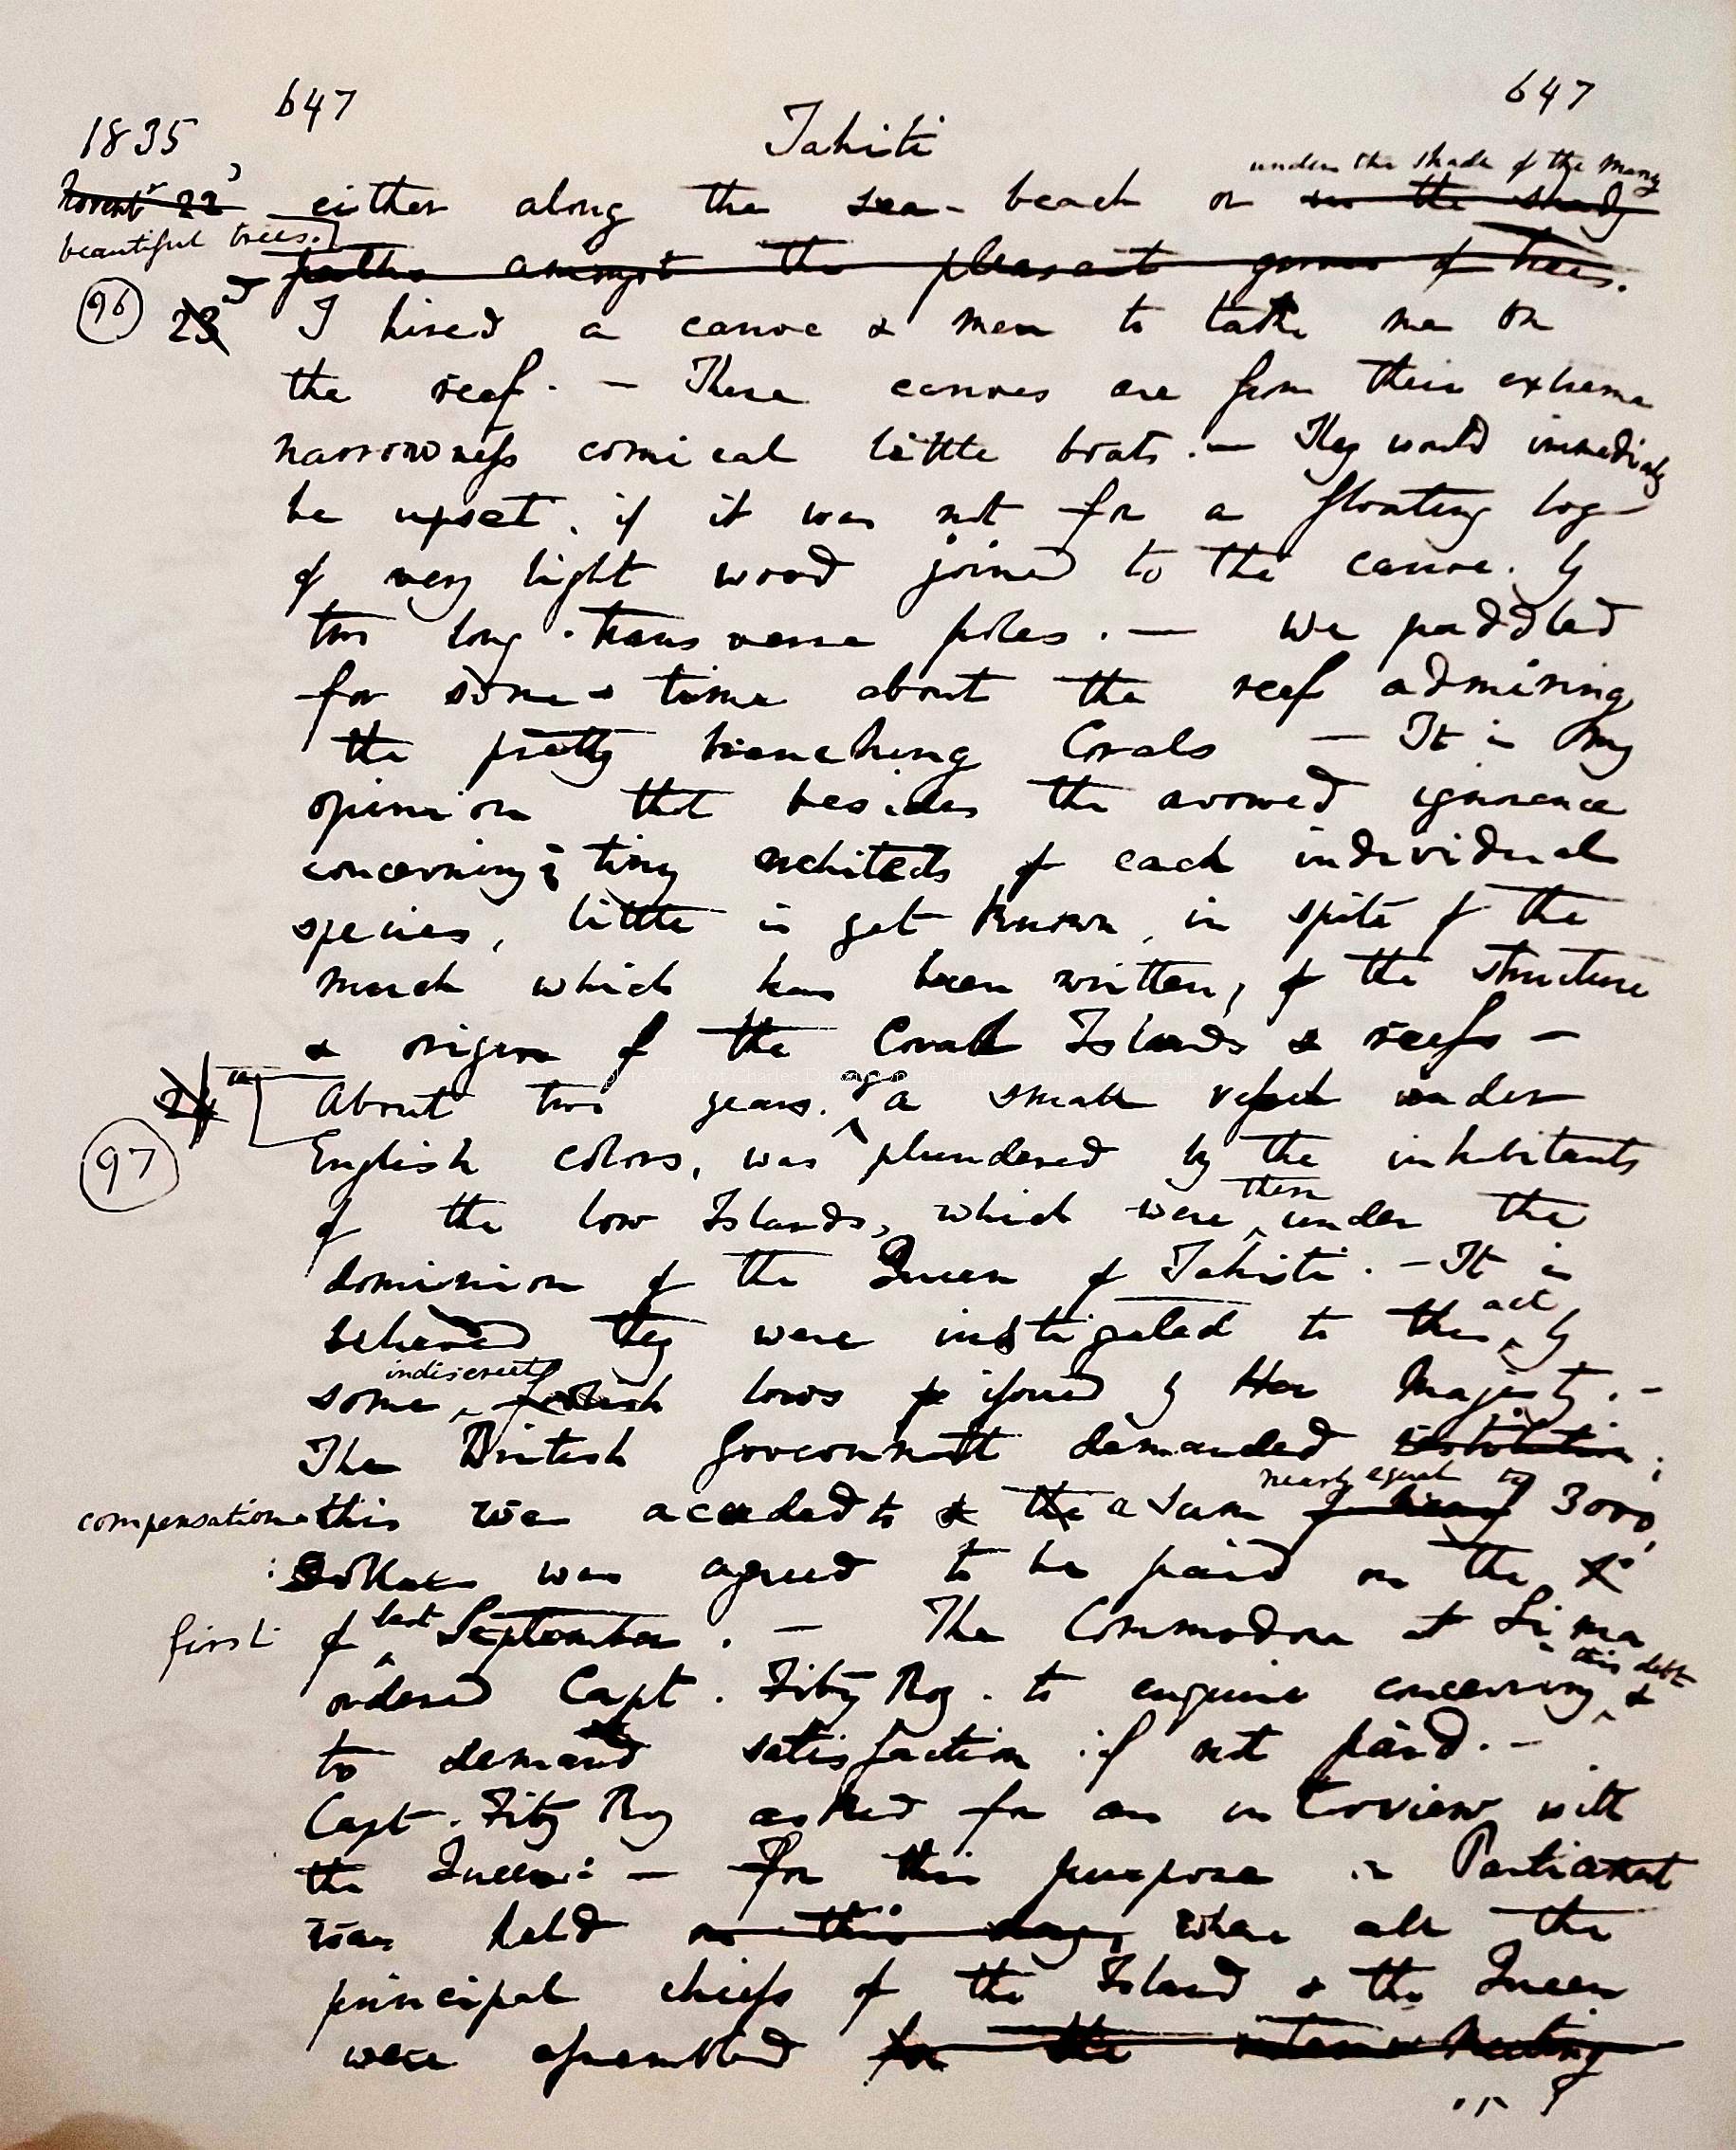 647 647
1835 Tahiti
under the shade of the many
Novemb^r 22^d either along the sea-beach or in the shady
beautiful trees.]
paths amongst the pleasant groves of trees.
(96) 23^d I hired a canoe & men to take me on
the reef. — These canoes are from their extreme
narrowness comical little boats. — They would immediately
be upset, if it was not for a floating log
of very light wood joined to the canoe by
two long transverse poles. — We paddled
for some time about the reef admiring
the pretty branching Corals — It is my
opinion that besides the avowed ignorance
concerning tiny architects of each individual
species, little is yet known, in spite of the
much which has been written, of the structure
& origin of the Coral Islands & reefs —
24^th About two years. ago a small vessel under
(97) English colors, was plundered by the inhabitants
then
of the low Islands, which were under the
dominion of the Queen of Tahiti. — It is
act
believed they were instigated to this by
indiscreet
some foolish laws issued by Her Majesty. —
The British Government demanded restitution;
nearly equal to
compensation this was acceded to & the a sum of nearly 3000
dollars was agreed to be paid on the
first of last September. — The Commodore at Lima
this debt
ordered Capt. Fitz Roy. to enquire concerning &
to demand satisfaction if not paid. —
Capt. Fitz Roy asked for an interview with
the Queen: — For this purpose a Parliament
was held on this day, where all the
principal chiefs of the Island & the Queen
were assembled for the interview meeting